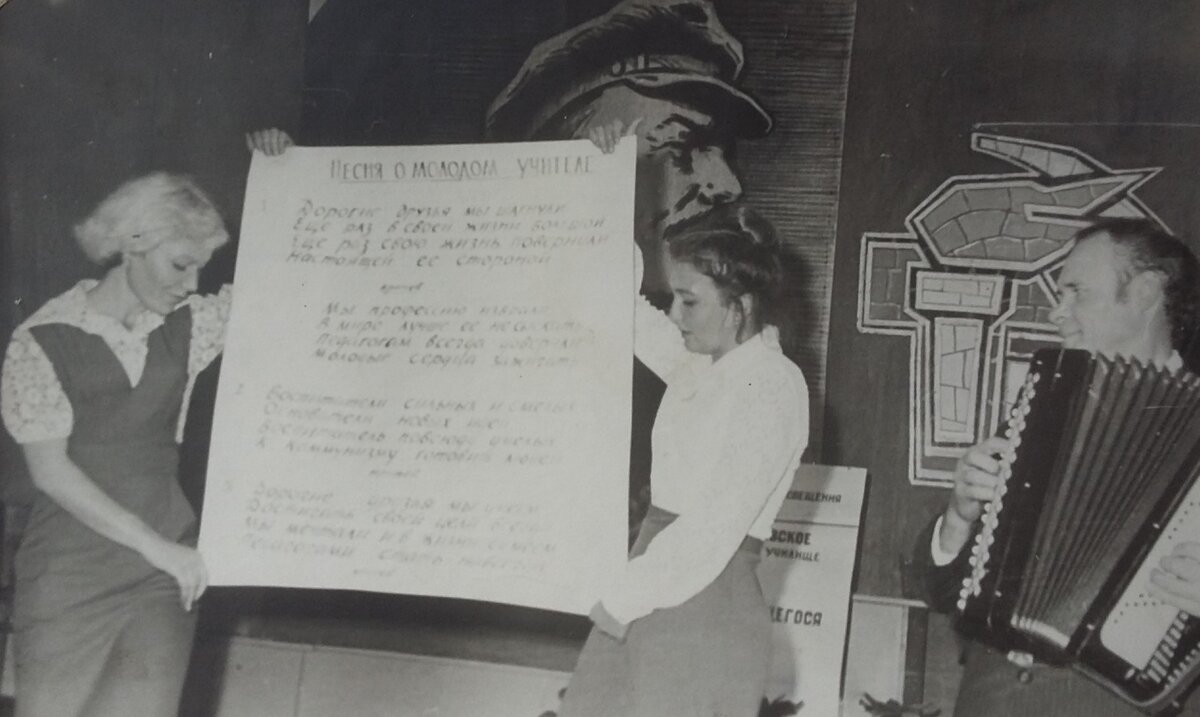 Песня о молодом учителе
1. Дорогие друзья мы шагнули
Еще раз в своей жизни большой
Еще раз свою жизнь повернули
Настоящей ее стороной
припев
Мы профессию избрали
В мире лучше ее не сыскать
Педагогам всегда доверяли
Молодые сердца зажигать
2. Воспитатели сильных и смелых
Основатели новых идей
Воспитатель повсюду умелых
К коммунизму готовит людей
припев
3. Дорогие друзья мы
своей цели
Мы мечтали и в жизни сумеем
Педагогами стать
припев
СВЕЩЕНИЯ
ВСКОЕ
УЧИЛИЩЕ
ЩЕГОСЯ